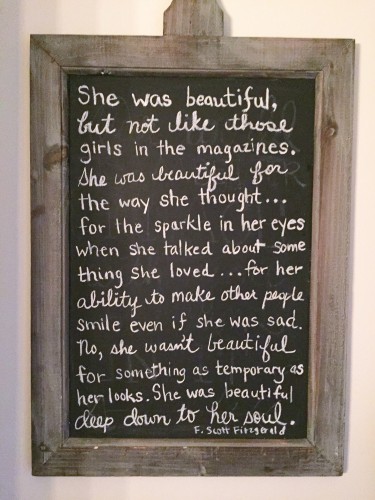 She was beautiful,
but not like those
girls in the magazines.
She was beautiful for
the way she thought...
for the sparkle in her eyes
when she talked about some
thing she loved ...for her
ability to make other people
smile even if she was sad.
No, she wasn't beautiful
for something as temporary as
her looks. She was beautiful
deep down to her soul.
F. Scott Fitzgerald